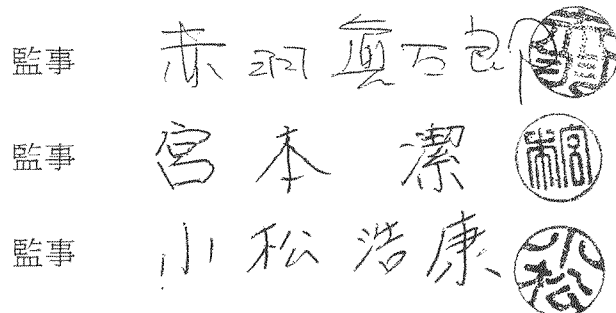 監事 赤羽眞一郎
監事 宮本 潔 宮本
監事 小松浩康 小松